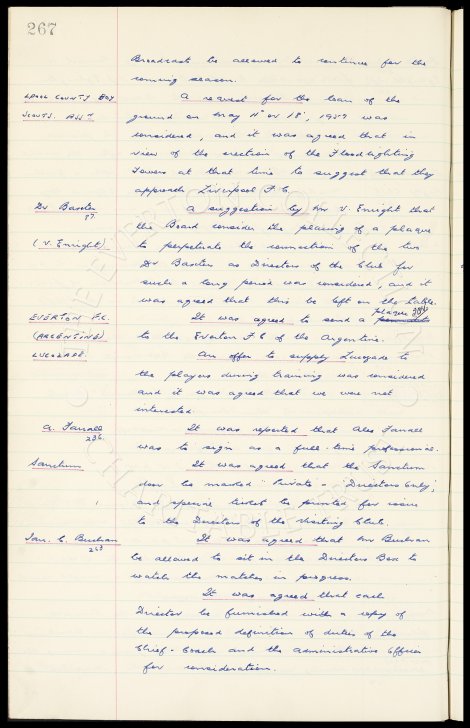 267
Broadcast be allowed to continue for the
coming season.
LPOOL COUNTY BOY
SCOUTS. ASSN
A request for the loan of the
ground on May 11 or 18, 1957 was
considered, and it was agreed that in
view of the erection of the Floodlighting
Towers at that time to suggest that they
approach Liverpool F.C.
Dr Baxter
97.
(V. Enright)
A suggestion by Mr V. Enright that
the Board consider the placing of a plaque
to perpetuate the connection of the two
Dr Baxters as Directors of the Club for
such a long period was considered, and it
was agreed that this be left on the table.
EVERTON F.C.
(ARGENTINE)
It was agreed to send a plaque
to the Everton F.C of the Argentine.
LUCOZADE.
An offer to supply Lucozade to
the players during training was considered
and it was agreed that we were not
interested.
A. Farrall
236.
It was reported that Alec Farrall
was to sign as a full-time professional.
Sanctum
It was agreed that the Sanctum
door be marked "Private - Directors Only",
and special ticket be printed for issue
to the Directors of the Visiting Club.
C. Buchan
263
It was agreed that Mr Buchan
be allowed to sit in the Directors Box to
watch the matches in progress.
It was agreed that each
Director be furnished with a copy of
the proposed definition of duties of the
Chief-Coach and the Administrative Officer
for consideration.